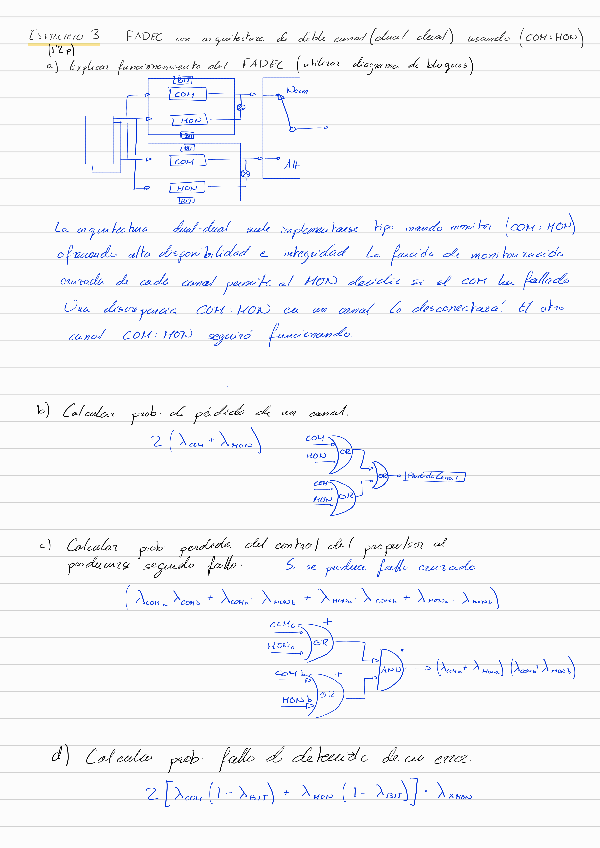 EJERCICIO 3 FADEC con arquitectura de doble canal (dual dual) usando (COM:MON)
(12p)
a) Explicar funcionamiento del FADEC (utilizar diagrama de bloques)
BIT
COM
MON
BIT
BIT
COM
MON
BIT
Norm
Alt
La arquitectura dual-dual suele implementarse tipo comando monitor (COM:MON)
ofreciendo alta disponibilidad e integridad. La función de monitorización
cruzada de cada canal permite al MON decidir si el COM ha fallado
Una discrepancia COM-MON en un canal lo desconectará. El otro
canal COM:MON seguirá funcionando.
b) Calcular prob. de pérdida de un canal.
2 (λCOM + λMON)
COM
MON
OR
COM
MON
OR
OR
c) Calcular prob perdida del control del propulsor al
producirse segundo fallo. Si se produce fallo cruzado
(λCOMa λCOMb + λCOMa · λMONb + λMONa · λCOMb + λMONa · λMONb)
COMa
MONa
OR
+
COMb
MONb
OR
+
AND
⇒ (λCOMa + λMONa) (λCOMb · λMONb)
d) Calcular prob. fallo de detección de un error.
2 [λCOM (1 - λBIT) + λMON (1 - λBIT)] · λXMON